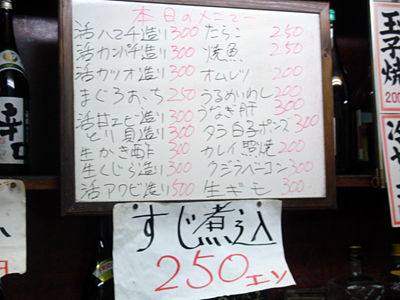 本日のメニュー
活ハマチ造り 300
活カンパチ造り 300
活カツオ造り 300
まぐろおゝち 250
活甘エビ造り 300
とり貝造り 300
生かき酢 300
生くじら造り 300
活アワビ造り 500
たらこ 250
焼魚 250
オムレツ 200
うるめいわし 200
うなぎ肝 300
タラ白子ポンズ 300
カレイ照焼 200
クジラベーコン 300
生ギモ 300
すじ煮込
250エン
玉子焼
200
冷や
辛口